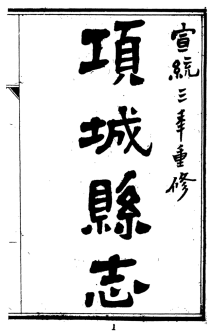 宣統三年重修
項城縣志
1